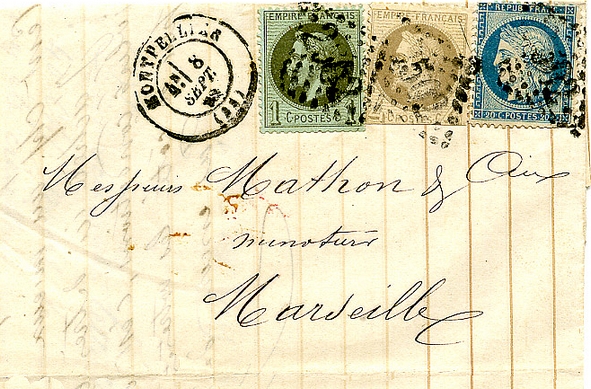 MONTPELLIER
8
SEPT.
(33)
EMPIRE FRANÇAIS
1 C POSTES 1
EMPIRE FRANÇAIS
C POSTES
REPUB. FRANC.
20 C POSTES 20
Messieurs Mathon &
minotiers
Marseille